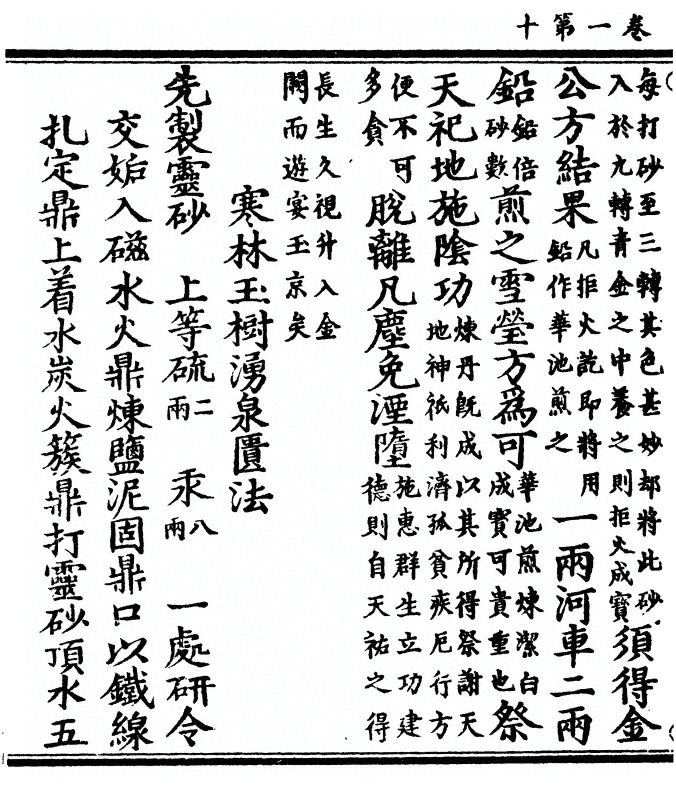 卷一第十
每打砂至三轉其色甚妙却將此砂入於九轉青金之中養之則拒火成寶須得金
公方結果凡拒火訖即將用鉛作華池煎之一兩河車二兩
鉛鉛倍砂數煎之雪瑩方爲可華池煎煉潔白成寶可貴重也祭
天祀地施陰功煉丹既成以其所得祭謝天地神祇利濟孤貧疾厄行方
便不可多貪脫離凡塵免湮墮施惠群生立功建德則自天祐之得
長生久視升入金闕而遊宴玉京矣
寒林玉樹湧泉匱法
先製靈砂 上等硫二兩 汞八兩 一處研令
交姤入磁水火鼎煉鹽泥固鼎口以鐵線
扎定鼎上着水炭火簇鼎打靈砂頂水五